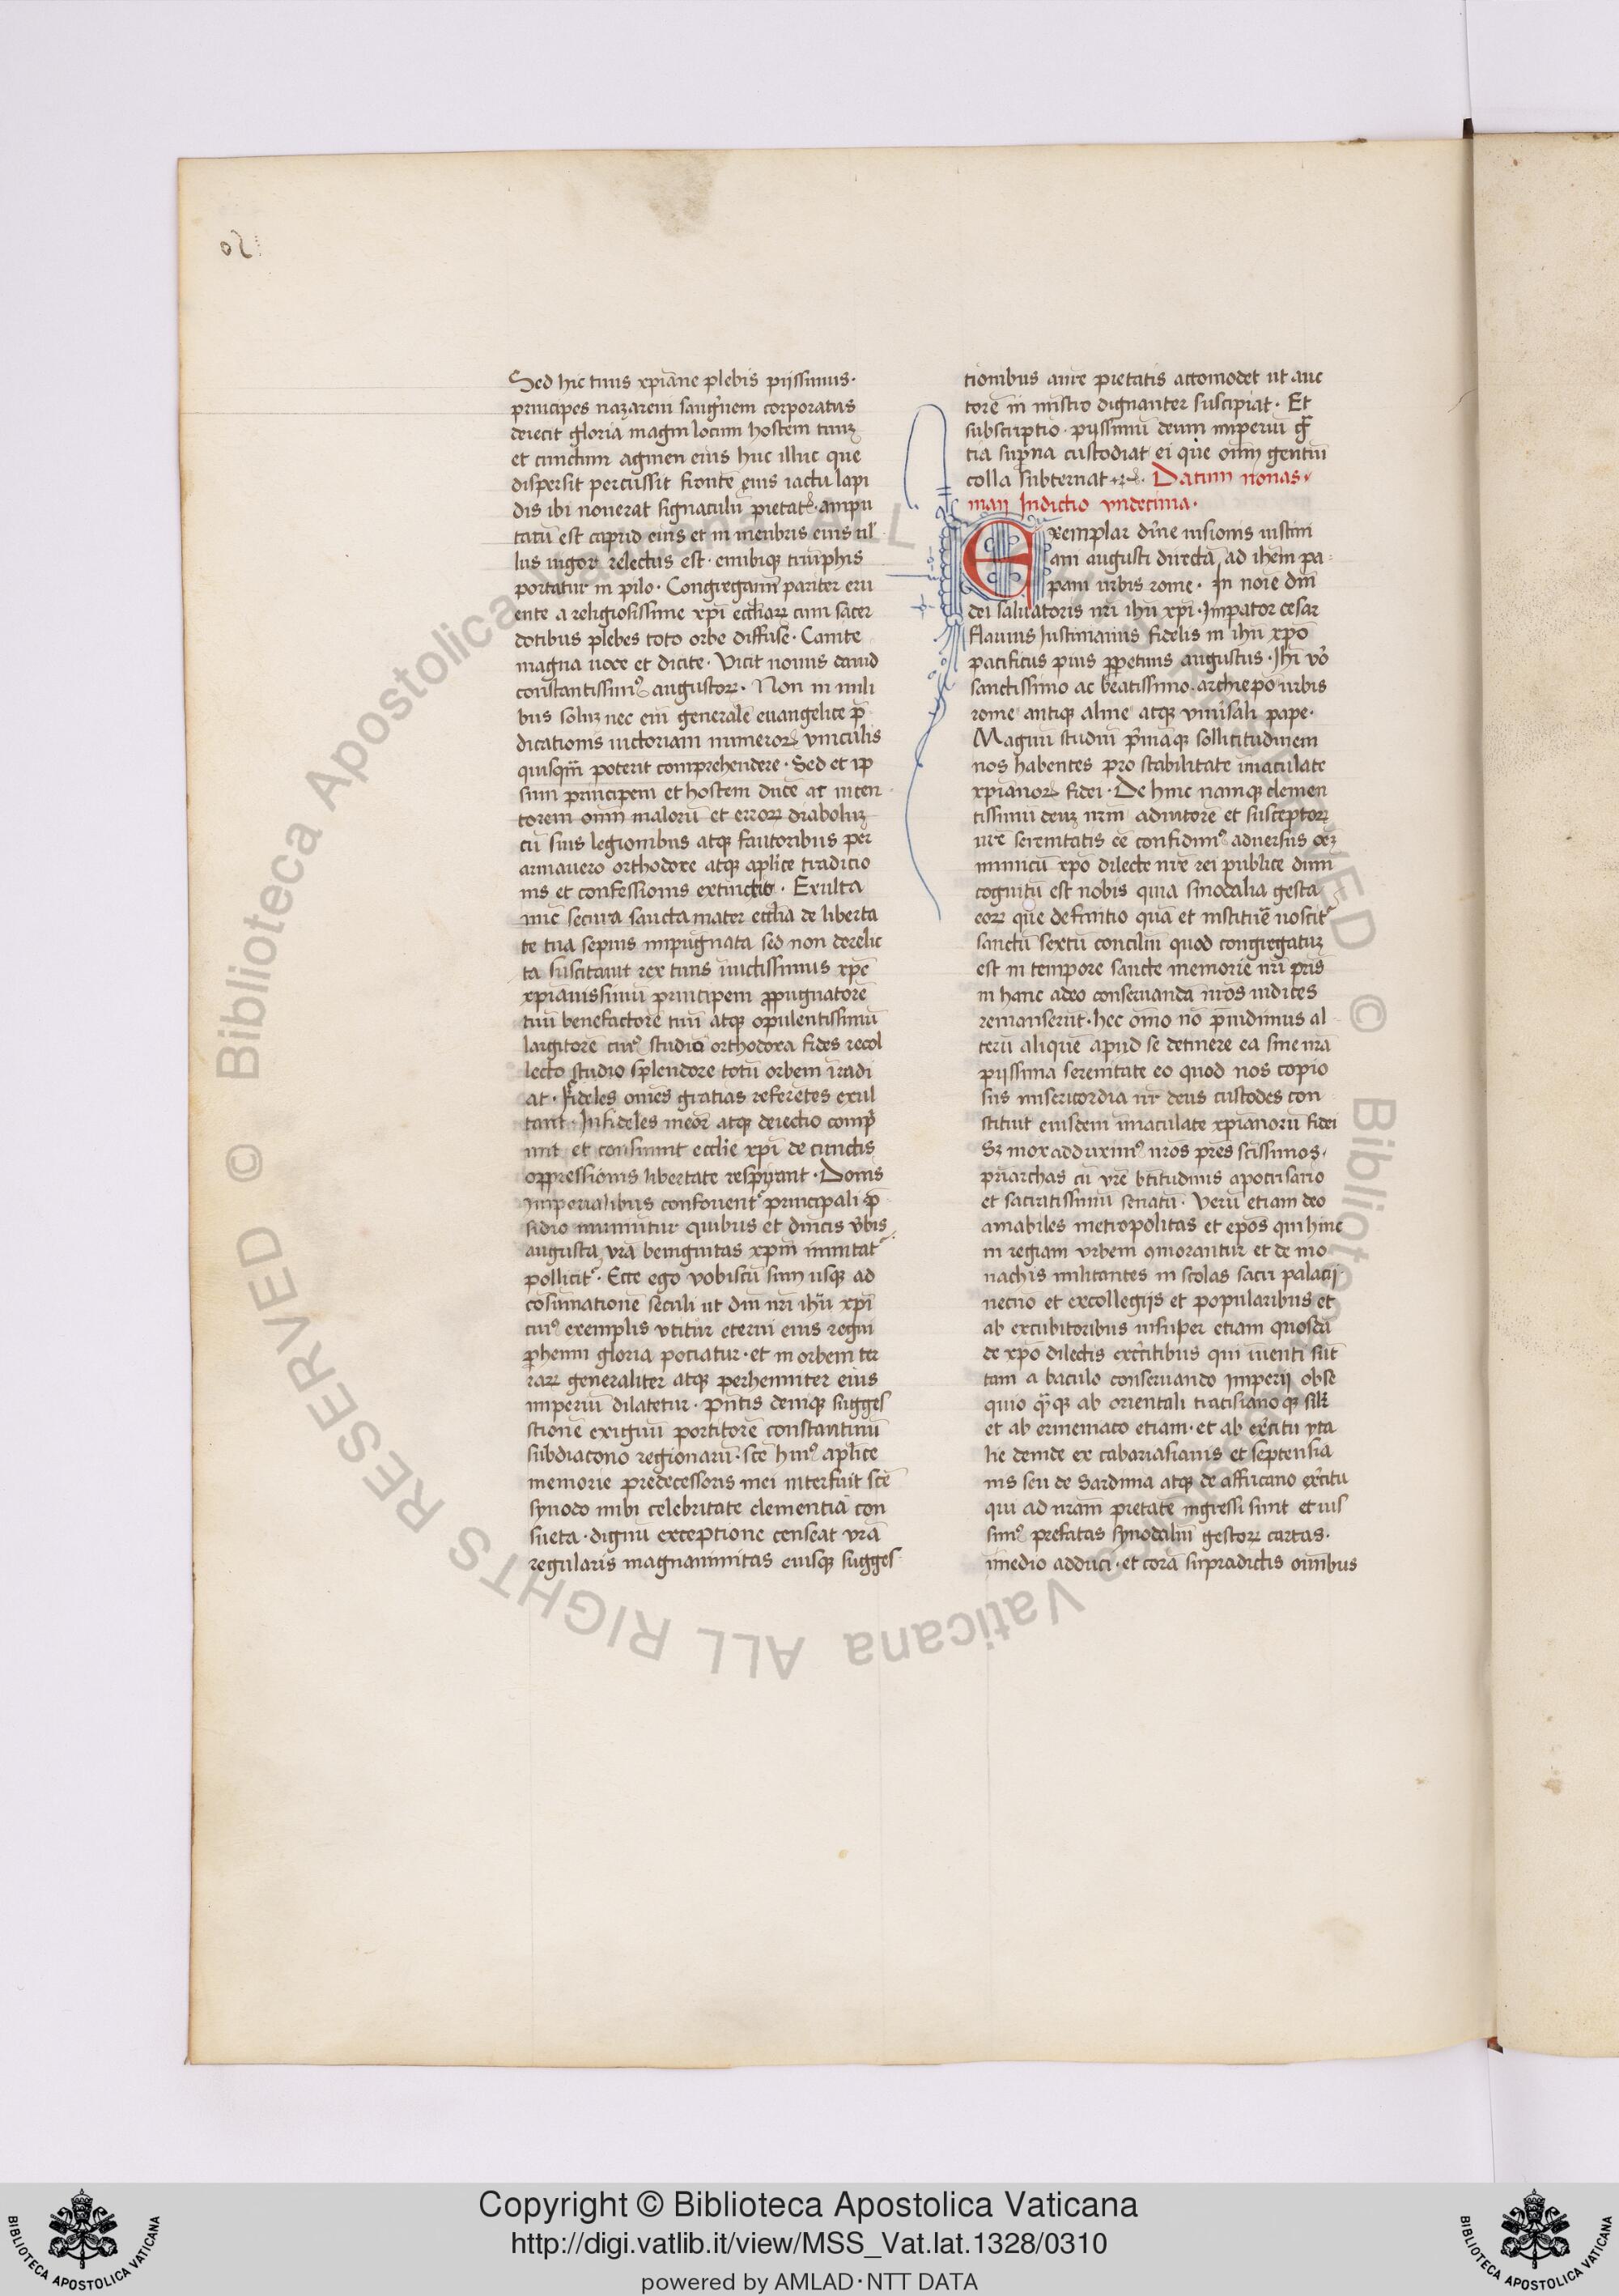 Sed hic tuus xp̄iane plebis pijssimus·
principes nazareni sanguinem corporatus
deiecit gloria magni locum hostem tuuȝ
et cunctum agmen eius huc illuc que
dispersit percussit frontē eius iactu lapi
dis ibi nouerat signaculū pietat· ampu
tatū est caput eius et in menbris eius ul
lus uigor relectus est·
portatur in pilo· Congregamī pariter
ente a religiosissime xp̄i eccl̄iaꝝ cum sacer
dotibus plebes toto orbe diffuse· Canite
magna uoce et dicite· Vicit nouus dauid
constantissim⁹ augustoꝝ· Non in mili
bus soluȝ nec enī generalē euangelice p̄
dicationis uictoriam numeroꝝ vniculis
quisqm̄ poterit comprehendere· Sed et ip
sum principem et hostem ducē ac inten
torem om̄i maloru᷑ et erroꝝ diaboluȝ
cū suis legionibus atqȝ fautoribus per
armauero orthodoxe atqȝ aplice traditio
nis et confessionis extincto· Exulta
nūc secura sancta mater eccl̄ia de liberta
te tua sepius inpugnata sed non derelic
ta suscitauit rex tuus inuictissimus xp̄c
xp̄ianissimū principem ꝓpugnatorē
tuū benefactorē tuū atqȝ opulentissimū
largitorē cui⁹ studio orthodoxa fides recol
lecto studio splendore totū orbem irradi
at· Fideles om̄es gratias referētes exul
tant· Infideles meōr atqȝ deiectio comp̄
mit et consumit eccl̄ie xp̄i de cunctis
oppressionis libertate respirant· Donis
imperialibus confouent᷑ principali p̄
sidio muniūtur quibus et dn̄icis v̄bis
augusta vr̄a benignitas xp̄m imitat᷑
pollicit᷑· Ecce ego vobiscū sum usqȝ ad
cōsumationē seculi ut dn̄i nr̄i ih̄u xp̄i
cui⁹ exemplis vtitur eterni eius regni
ꝑhenni gloria pociatur· et in orbem ter
raꝝ generaliter atqȝ perhenniter eius
imperiū dilatetur· Pn̄tis deniqȝ sugges
stionē exiguū portitorē constantinū
subdiacono regionariū· sc̄e hui⁹ aplice
memorie predecessoris mei interfuit sc̄e
synodo mibi celebritate clementiā con
sueta· dignū exceptione censeat vr̄a
regularis magnanimitas eiusqȝ sugges
tionibus aure pietatis accomodet ut auc
torē in mistro dignanter suscipiat· Et
subscriptio· pijssimū deum imperiū gr̄
tia sup̄na custodiat ei que om̄i gentiū
colla subternat· Datum nonas·
maij Indictio vndecima·
Exemplar dn̄e iusionis iustini
ani augusti directā ad ih̄em pa
pam urbis rome· In noīe dn̄i
dei saluatoris nr̄i ih̄u xp̄i· Impator cesar
flauius Iustinianus fidelis in ih̄u xp̄o
pacificus pius ꝑpetuus augustus· Ih̄i vō
sanctissimo ac beatissimo· archiepō urbis
rome antiqȝ alme atqȝ vniu̓sali pape·
Magnū studiū p̄māqȝ sollicitudinem
nos habentes pro stabilitate imaculate
xp̄ianoꝝ fidei· De hinc namqȝ clemen
tissimū deuȝ nr̄m adiutorē et susceptoꝝ
nr̄e serenitatis eē confidim⁹ aduersus
inimicū xp̄o dilecte nr̄e rei publice dum
cognitū est nobis quia sinodalia gesta
eoꝝ que definitio quā et instituē noscit᷑
sanctū sextū conciliū quod congregatuȝ
est in tempore sancte memorie nr̄i pr̄is
in hanc adeo conseruandā nr̄os iudices
remanserūt· hec om̄o nō p̄uidimus al
terū aliquē apud se detinere ea sine nr̄a
pijssima serenitate eo quod nos copio
sus misericordia nr̄ deus custodes con
stituit eiusdem imaculate xp̄ianorū fidei
Sȝ mox adduxim⁹ nr̄os pr̄es sc̄issimos·
pr̄iarchas cū vr̄e bt̄itudinis apocrisario
et sacratissimū senatū· Verū etiam deo
amabiles metropolitas et epōs qui hinc
in regiam vrbem ꝯmorantur et de mo
nachis militantes in scolas sacri palacij·
necno et excollegijs et popularibus et
ab excubitoribus insuper etiam quosdā
de xp̄o dilectis exc̄itibus qui iuenti sūt
tam a baculo conseruando Imperij obse
quio qȝ ab orientali tracisianoqȝ sil̄r
et ab ermeniaco etiam· et ab ex̄citu yta
lie deinde ex cabariasianis et septensia
nis seu de Sardinia atqȝ de affricano ex̄citu
qui ad nr̄am pietatē ingressi sunt et ius
sim⁹ prefatas synodaliū gestoꝝ cartas·
imedio adduci· et corā supradictis om̄ibus
© Biblioteca Apostolica Vaticana ALL RIGHTS RESERVED © Biblioteca Apostolica Vaticana ALL RIGHTS RESERVED
Copyright © Biblioteca Apostolica Vaticana
http://digi.vatlib.it/view/MSS_Vat.lat.1328/0310
powered by AMLAD·NTT DATA
BIBLIOTECA APOSTOLICA VATICANA
BIBLIOTECA APOSTOLICA VATICANA